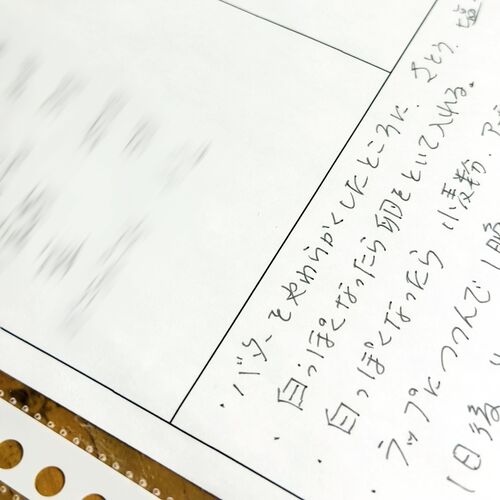 ・バターをやわらかくしたところに、さとう、塩
・白っぽくなったら卵をといて入れる。
・白っぽくなったら小麦粉、ア
・ラップにつつんで1晩
1日後